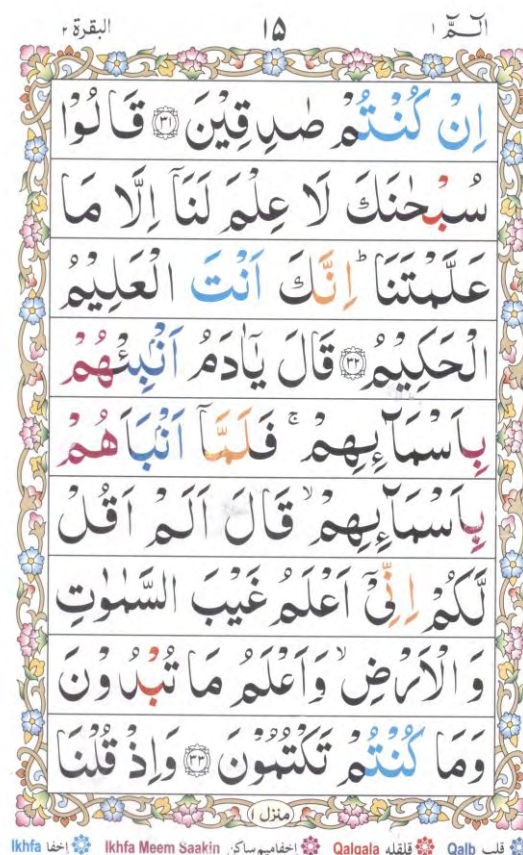 الٓـمّٓ ١ ١۵ البقرة ٢
اِنْ كُنْتُمْ صٰدِقِيْنَ ۝٣١ قَالُوْا
سُبْحٰنَكَ لَا عِلْمَ لَنَاۤ اِلَّا مَا
عَلَّمْتَنَا ؕ اِنَّكَ اَنْتَ الْعَلِيْمُ
الْحَكِيْمُ ۝٣٢ قَالَ يٰۤاٰدَمُ اَنْۢبِئْهُمْ
بِاَسْمَآىِٕهِمْ ۚ فَلَمَّاۤ اَنْۢبَاَهُمْ
بِاَسْمَآىِٕهِمْ ۙ قَالَ اَلَمْ اَقُلْ
لَّكُمْ اِنِّىْۤ اَعْلَمُ غَيْبَ السَّمٰوٰتِ
وَ الْاَرْضِ ۙ وَاَعْلَمُ مَا تُبْدُوْنَ
وَمَا كُنْتُمْ تَكْتُمُوْنَ ۝٣٣ وَاِذْ قُلْنَا
منزل ١
Ikhfa إخفا Ikhfa Meem Saakin إخفاميم ساكن Qalqala قلقله Qalb قلب